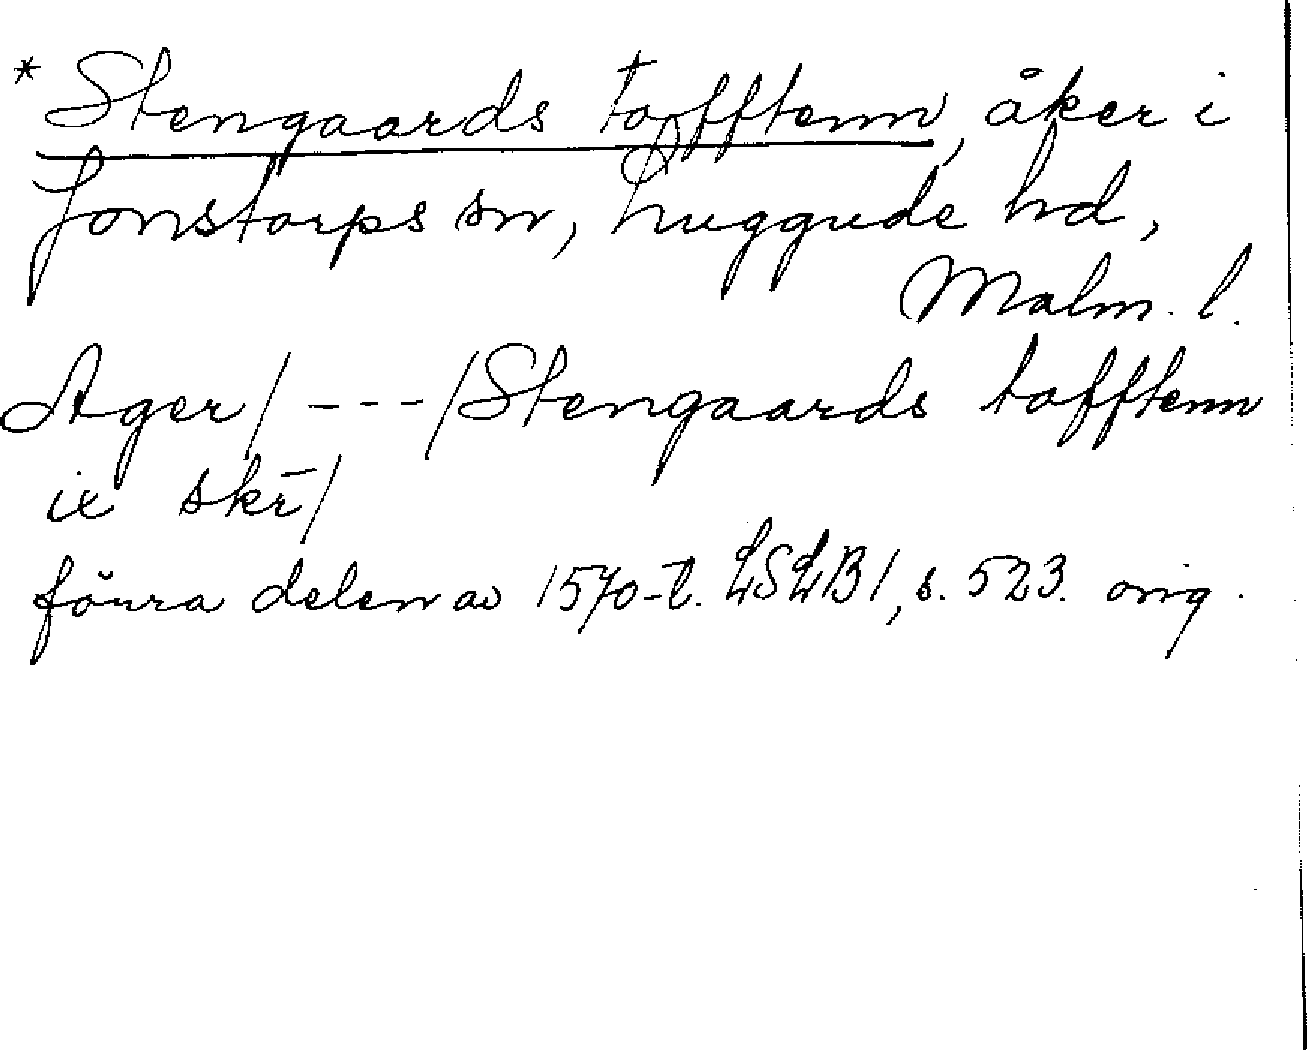 * Stengaards tofftenn, åker i
Jonstorps sn, Luggude hd,
Malm. l.
Ager/---/Stengaards tofftenn
ix skr̄/
förra delen av 1570-t. LSLB1, s. 523. orig.